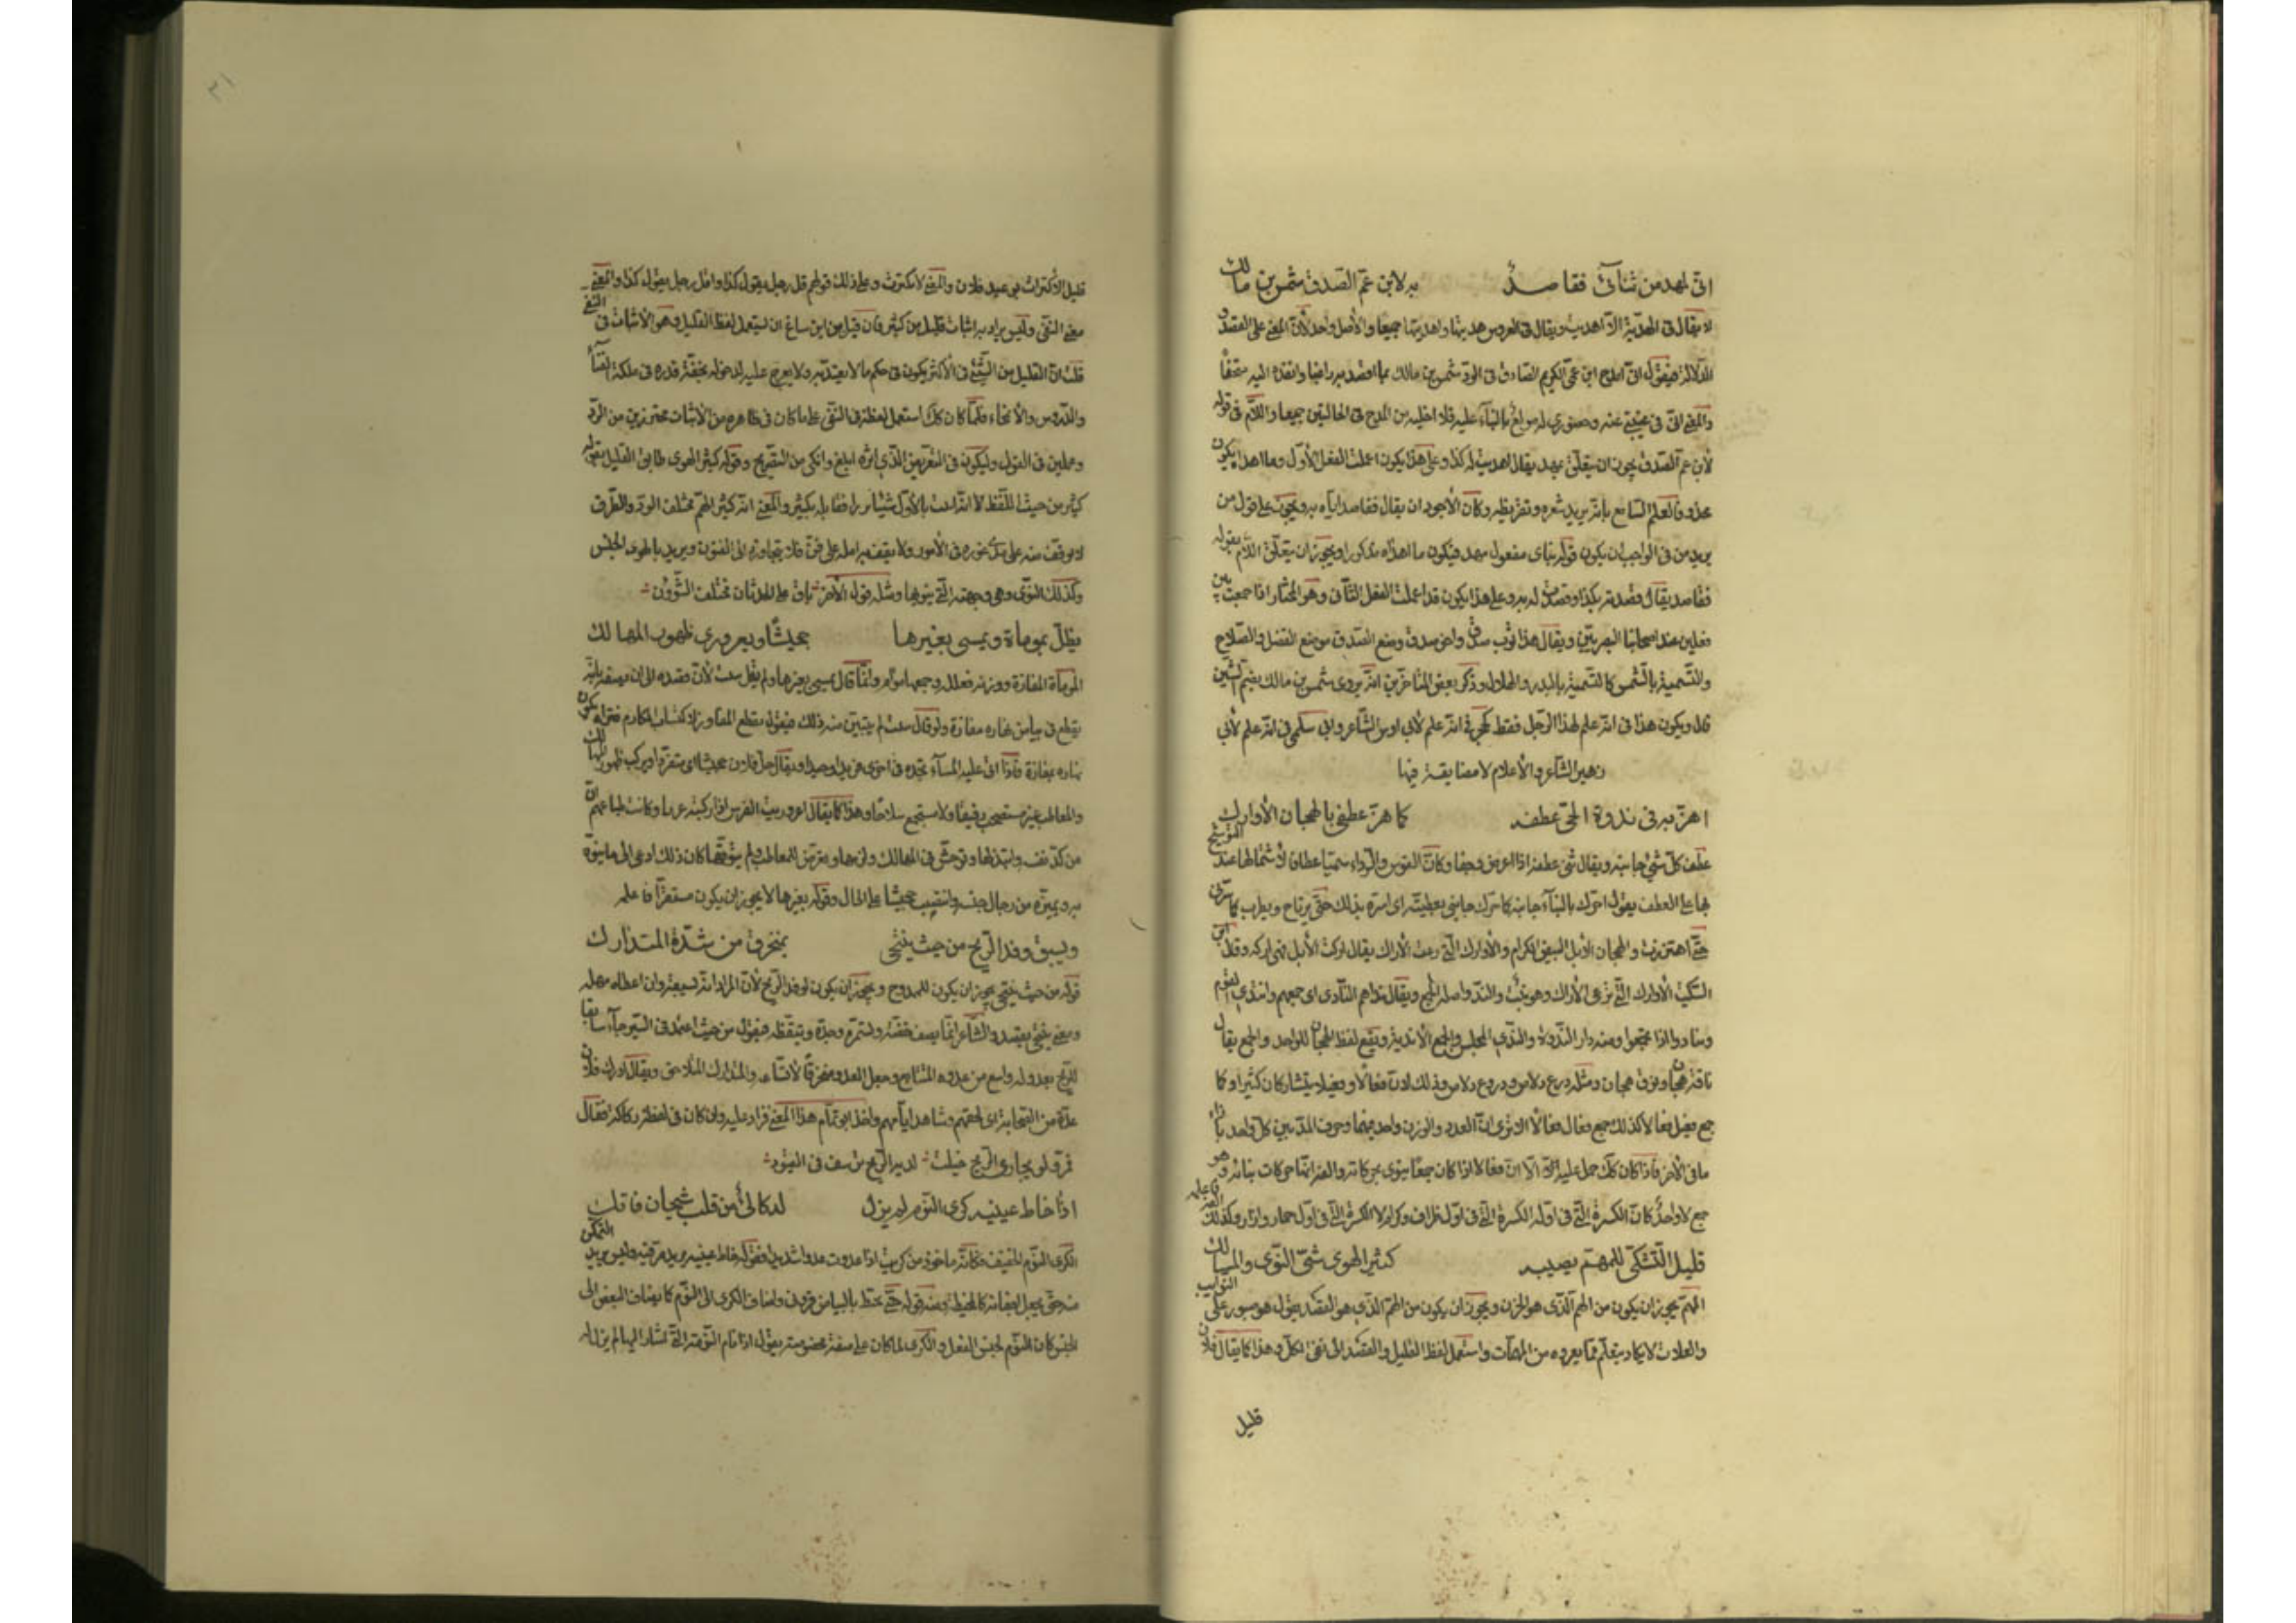 اني لمهد من ثنائي فقاصد به لابن عم الصدق شمس بن مالك
لا يقال في الهدية الا اهديت ويقال في العروس هديتها واهديتها جميعا والاصل واحد لان المعنى على القصد و
الدلالة فيقول اني امدح ابن عمي الكريم الصادق في الود شمس بن مالك بما اقصد به راغبا وانفذه اليه متحفا
والمعنى اني في غيبتي عنه وحضوري له مولع بالثناء عليه فلا اخليه من المدح في الحالتين جميعا واللام في قوله
لابن عم الصدق يجوز ان يتعلق بمهد يقال اهديت له كذا وعلى هذا يكون اعملت الفعل الاول وما اهداه يكون
محذوفا لعلم السامع بانه يريد شعره وتقريظه وكان الاجود ان يقال فقاصد اياه به ويجوز على قول من
يزيد من في الواجب ان يكون قوله ثنائي مفعول مهد فيكون ما اهداه مذكورا ويجوز ان يتعلق اللام بقوله
فقاصد يقال قصدته بكذا وقصدت له به وعلى هذا يكون قد اعملت الفعل الثاني وهو المختار اذا جمعت بين
فعلين عند اصحابنا البصريين ويقال هذا ثوب صدق واخو صدق وضع الصدق موضع الفضل والصلاح
والتسمية بالشمس كالتسمية بالبدر والهلال وذكر بعض المتاخرين انه يروى شمس بن مالك بضم الشين
قال ويكون هذا في انه علم لهذا الرجل فقط كحجر في انه علم لابي اوس الشاعر وابي سلمى في انه علم لابي
زهير الشاعر والاعلام لا مضايقة فيها
اهز به في ندوة الحي عطفه كما هز عطفي بالهجان الاوارك
عطف كل شيء جانبه ويقال ثنى عطفه اذا اعرض وجفا وكان القوس والرداء سميا عطافا لاشتمالهما عند التوشح
بها على العطف يقول احرك بالثناء جانبه كما حرك جانبي بعطيته اى اسره بذلك حتى يرتاح ويطرب كما سرني
حتى اهتززت والهجان الابل البيض الكرام والاوارك التي رعت الاراك يقال اركت الابل فهي اركة وقال ابن
السكيت الاوارك التي ترعى الاراك وهو نبت والندو اصله الجمع ويقال نداهم النادى اى جمعهم وانتدى القوم
وتنادوا اذا اجتمعوا ومنه دار الندوة والندي المجلس والجمع الاندية ويقع لفظ الهجان للواحد والجمع يقال
ناقة هجان ونوق هجان ومثله درع دلاص ودروع دلاص وذلك لان فعالا وفعيلا يتشاركان كثيرا وكما
جمع فعيل فعالا كذلك جمع فعال فعالا الا ترى ان العدد والوزن واحد فيهما وحرف المد من كل واحد بازاء
ما في الاخر فاذا كان كذلك حمل عليه الا ان فعالا اذا كان جمعا ينوى بحركاته والفه انها حركات بنائه وهو
جمع لا واحد كان الكسرة التي في اوله الكسرة التي في اول ظراف وكرام لا الكسرة التي في اول حمار وازار وكذلك الف فاعلم
قليل التشكي للمهم يصيبه كثير الهوى شتى النوى والمسالك
المهم يجوز ان يكون من الهم الذي هو الحزن ويجوز ان يكون من الهم الذي هو القصد يقول هو صبور على النوايب
والعلات لا يكاد يتالم مما يعروه من المهمات واستعمل لفظ القليل والقصد الى نفي الكل وهذا كما يقال فلان
قليل
قليل الاكتراث بوعيد فلان والمعنى لا يكترث وعلى ذلك قولهم قل رجل يقول كذا واقل رجل يقول كذا والمعنى
معنى النفي وليس يراد به اثبات قليل من كثير فان قيل من اين ساغ ان يستعمل لفظ القليل وهو الاثبات في النفي
قلت ان القليل من الشيء في الاكثر يكون في حكم ما لا يعتد به ولا يعرج عليه لدخوله بخفة قدره في ملكة الفناء
والدروس والانمحاء فلما كان كذلك استعمل لفظه في النفي على ما كان في ظاهره من الاثبات محترزين من الرد
ومجملين في القول وليكون في التعريض الذي اثره ابلغ وانكى من التصريح وقوله كثير الهوى طابق القليل بقوله
كثير من حيث اللفظ لا انه اثبت بالاول شيئا نزرا فقابله بكثير والمعنى انه كثير الهم مختلف الوجوه والطرق
لا يوقف منه على حد غوره في الامور ولا يقف به امله على فن فلا يتجاوزه الى الفنون ويريد بالهوى الجنس
وكذلك النوى وهي وجهته التي ينويها ومثله قول الاخر باق على الحدثان مختلف الشؤون
يظل بموماة ويمسي بغيرها جحيشا ويعروري ظهور المهالك
الموماة المفازة ووزنه فعللة وجمعها موام وانما قال يمسي بغيرها ولم يقل يبيت لان قصده الى ان يصفه بانه
يقطع في بياض نهاره مفازة ولو قال يبيت لم يتبين منه ذلك فيقول يقطع المفاوز لاكتساب المكارم فتراه يكون
نهاره بمفازة فاذا اتى عليه المساء تجده في اخرى فريدا وحيدا ويقال حل فلان جحيشا اى متفردا ويركب ظهور المهالك
والمعاطب غير مستصحب رفيقا ولا مستجمع سلاحا وهذا كما يقال اعروريت الفرس اذا ركبته عريا وكانت طباعهم ان
من كد نفسه وابتذلها وتوحش في المهالك ولزمها وتعرض للمعاطب ولم يتوقها كان ذلك ادعى الى ما ينوه
به ويميزه من رجال جنسه وانتصب جحيشا على الحال وقوله بغيرها لا يجوز ان يكون مستقرا فاعلمه
ويسبق وفد الريح من حيث ينتحي بمنخرق من شدة المتدارك
قوله من حيث ينتحي يجوز ان يكون للممدوح ويجوز ان يكون لوفد الريح لان المراد انه يسبقه وان اعطاه مهله
ومعنى ينتحي يقصد والشاعر انما يصف خفته وتشمره وحدة وتيقظه فيقول من حيث اعتمد في السير جاء سابقا
للريح بعدو له واسع من عدوه المتتابع وجعل العدو منخرقا لاتساعه والمتدارك المتلاحق ويقال ادرك فلان
عدة من الصحابة اى لحقهم وشاهد ايامهم واخذ ابو تمام هذا المعنى فزاد عليه وان كان في لفظه ركاكة فقال
فمر فلو يجاري الريح خيلت لديه الريح ترسف في القيود
اذا خاط عينيه كرى النوم لم يزل له كالئ من قلب شيحان فاتك
الكرى النوم الخفيف وكانه ماخوذ من كريت اذا عدوت عدوا شديدا وقوله خاط عينيه يريد مر فيه وليس يريد التمكن
منه حتى يجعل اجفانه كالمخيطة ومنه قوله حتى تخيط بالبياض قروني واضاف الكرى الى النوم كما يضاف البعض الى
الجنس كان النوم لجنس الفعل والكرى لما كان على صفة مخصوصة يقول اذا نام النومة التي اشار اليها لم يزل له